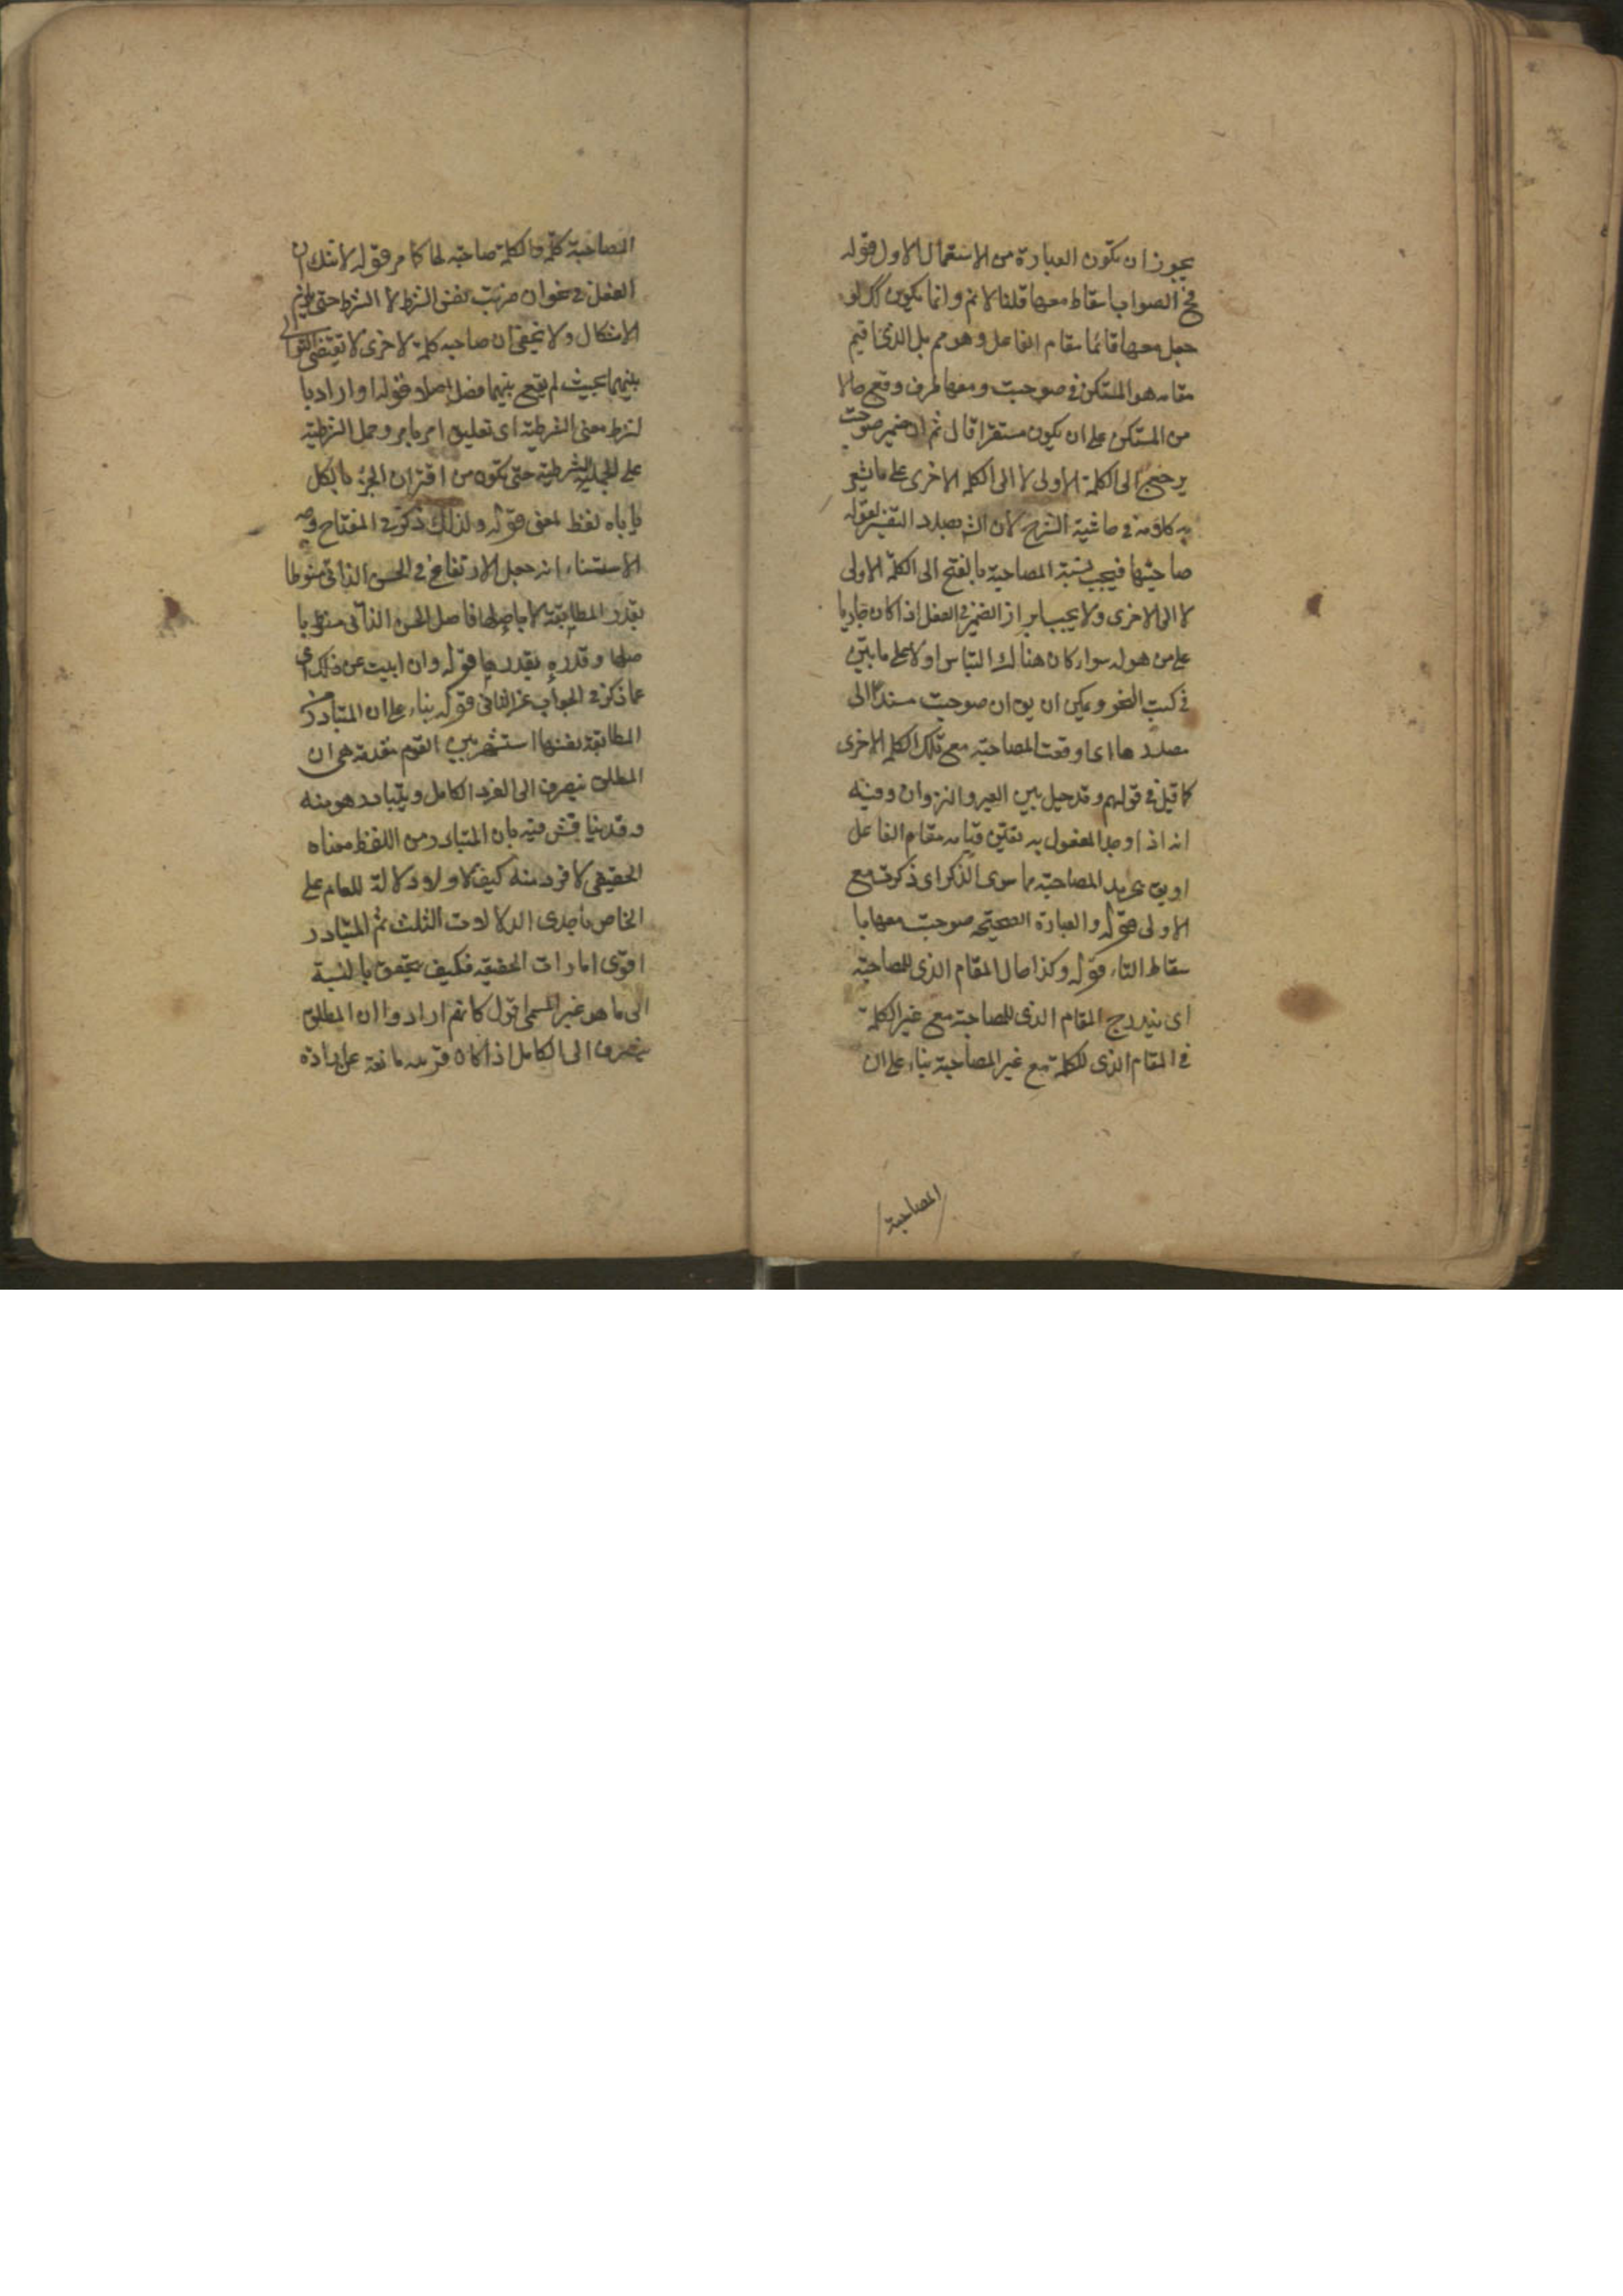 يجوز ان تكون العبارة من الاستعمال الاول قوله
فح الصواب اسقاط معها قلنا لا نم وانما يكون كذلك لو
جعل معها قائما مقام الفاعل وهو مم بل الذى اقيم
مقامه هو المستكن فى صوحبت ومعها ظرف وقع حالا
من المستكن على ان يكون مستقرا قال ثم ان ضمير صوحبت
يرجع الى الكلمة الاولى لا الى الكلمة الاخرى على ما يشعر
به كلامه فى حاشية الشرح لان الش بصدد التفسير لقوله
صاحبتها فيجب نسبة المصاحبة بالفتح الى الكلمة الاولى
لا الى الاخرى ولا يجب ابراز الضمير فى الفعل اذا كان جاريا
على من هو له سواء كان هناك التباس او لا على ما بين
فى كتب النحو ويمكن ان يق ان صوحبت مسند الى
مصدرها اى اوقعت المصاحبة مع تلك الكلمة الاخرى
كما قيل فى قولهم وقد حيل بين العير والنزوان وفيه
انه اذا وجد المفعول به تعين قيامه مقام الفاعل
او يق بجريد المصاحبة مما سوى الذكر اى ذكرت مع
الاولى قوله والعبارة الصحيحة صوحبت معها با
سقاط التاء قوله وكذا حال المقام الذى للمصاحبة
اى يندرج المقام الذى للمصاحبة مع غير الكلمة
فى المقام الذى للكلمة مع غير المصاحبة بناء على ان
المصاحبة
المصاحبة كلمة والكلمة صاحبة لها كما مر قوله لا شك ان
الفعل فى نحو ان ضربت نفس الشرط لا الشرط حتى يلزم
الاشكال ولا يخفى ان صاحبة كلمة لاخرى لا تقتضى التوالى
بينهما بحيث لم يقع بينهما فصل اصلا قوله او اراد با
لشرط معنى الشرطية اى تعليق امر بامر وحمل الشرطية
على الجملة الشرطية حتى تكون من اقتران الجزء بالكل
ياباه لفظ المعنى قوله ولذلك ذكر فى المفتاح
الاستثناء انه جعل الارتفاع فى الحسن الذاتى منوطا
بقدر المطابقة لا باصلها فاصل الحسن الذاتى منوط با
صلها وقدره بقدرها قوله وان ابيت عن ذلك اى
عما ذكر فى الجواب عن الثانى قوله بناء على ان المتبادر من
المطابقة نفسها اشتهر بين القوم مقدمة هى ان
المطلق ينصرف الى الفرد الكامل ويتبادر هو منه
وقد يناقش فيه بان المتبادر من اللفظ معناه
الحقيقى لا فرد منه كيف لا ولا دلالة للعام على
الخاص باحدى الدلالات الثلث ثم المتبادر
اقوى امارات الحقيقة فكيف يتحقق بالنسبة
الى ما هو غير المسمى اقول كانهم ارادوا ان المطلق
ينصرف الى الكامل اذا كان قرينة مانعة عن ارادة